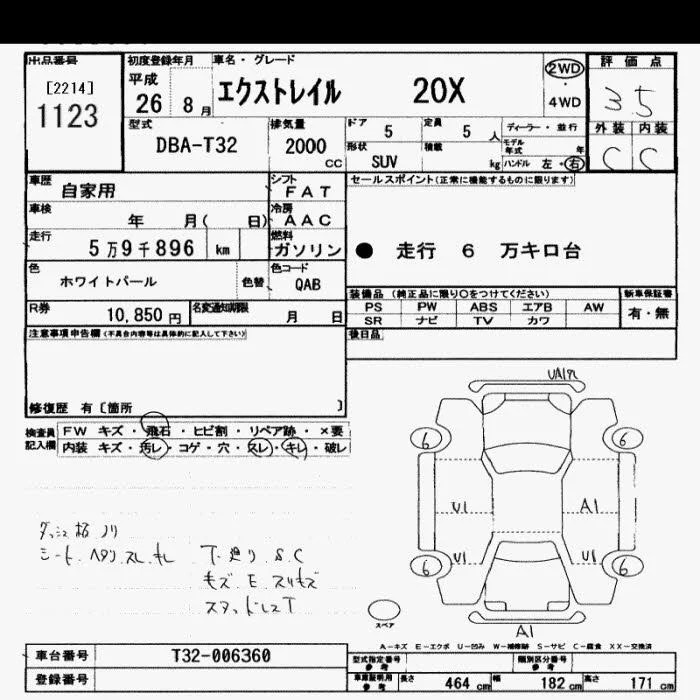 出品番号
[2214]
1123
初度登録年月
平成
26 8 月
車名・グレード
エクストレイル 20X
2WD
・
4WD
評価点
3.5
外装 内装
C C
型式
DBA-T32
排気量
2000
CC
ドア 5
定員 5 人
形状
SUV
積載
kg
ディーラー・並行
モデル
年式 年
ハンドル 左・右
車歴
自家用
シフト
FAT
車検
年 月( 日)
冷房
AAC
走行
5万9千896 km
燃料
ガソリン
色
ホワイトパール
色替
色コード
QAB
R券
10,850 円
名変通知期限
月 日
セールスポイント(正常に機能するものに限ります)
● 走行 6 万キロ台
装備品 (純正品に限り○をつけてください)
PS PW ABS エアB AW
SR ナビ TV カワ
新車保証書
有・無
後日品
注意事項申告欄(不具合内容等は具体的に記入して下さい)
修復歴 有〔箇所 〕
検査員
記入欄
FW キズ・飛石・ヒビ割・リペア跡・×要
内装 キズ・汚レ・コゲ・穴・スレ・キレ・破レ
シート ヘタリ スレ キレ
下廻り S.C
キズ E スリキズ
6 6
U1 A1
U1 U1
6 6
スペア
A1
A-キズ E-エクボ U-凹み W-補修跡 S-サビ C-腐食 XX-交換済
車台番号
T32-006360
登録番号
型式指定番号
参考
類別区分番号
参考
車庫証明用
参考
長さ 464 cm 幅 182 cm 高さ 171 cm